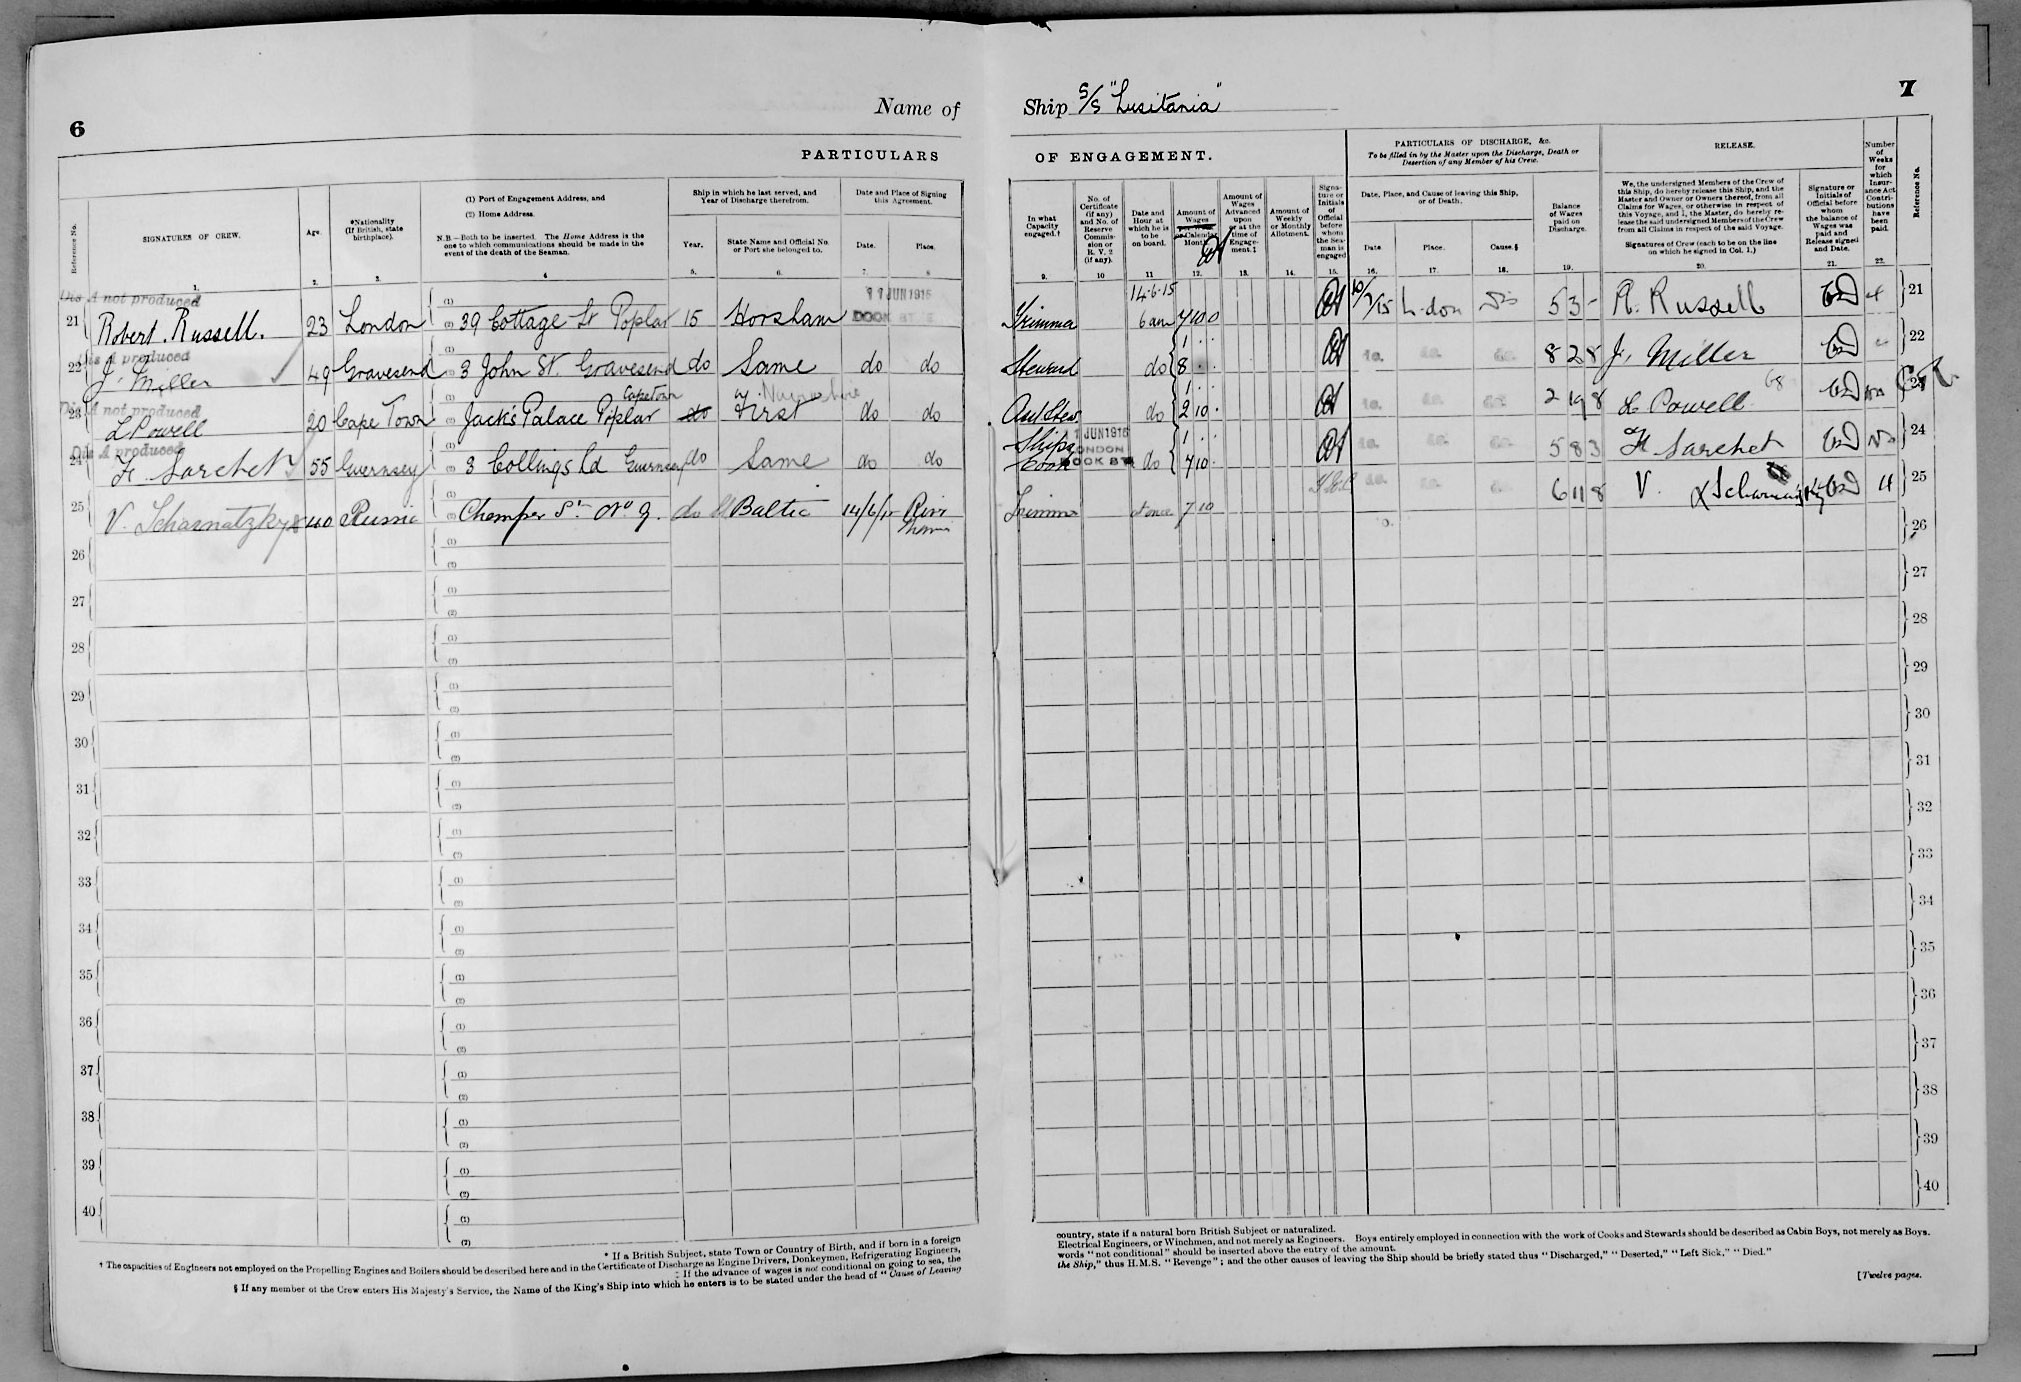 6
Name of
PARTICULARS
Reference No.
SIGNATURES OF CREW.
Age.
*Nationality
(If British, state
birthplace).
(1) Port of Engagement Address, and
(2) Home Address.
N.B.—Both to be inserted. The Home Address is the
one to which communications should be made in the
event of the death of the Seaman.
Ship in which he last served, and
Year of Discharge therefrom.
Year.
State Name and Official No.
or Port she belonged to.
Date and Place of Signing
this Agreement.
Date.
Place.
1. 2. 3. 4 5. 6. 7. 8
Dis A not produced
21 Robert Russell. 23 London (1) (2) 39 Cottage St Poplar 15 Horsham 11 JUN 1915 DOCK ST E
Dis A produced
22 J. Miller 49 Gravesend (1) (2) 3 John St. Gravesend do Same do do
Dis A not produced
23 L Powell 20 Cape Town (1) (2) Jack's Palace Poplar Cape Town do First do do
Dis A produced
24 H Sarchet 55 Guernsey (1) (2) 3 Collings Rd Guernsey do Same do do
25 V. Scharnatzky 40 Russia (1) (2) do Baltic 14/6/15 River
26 (1) (2)
27 (1) (2)
28 (1) (2)
29 (1) (2)
30 (1) (2)
31 (1) (2)
32 (1) (2)
33 (1) (2)
34 (1) (2)
35 (1) (2)
36 (1) (2)
37 (1) (2)
38 (1) (2)
39 (1) (2)
40 (1) (2)
* If a British Subject, state Town or Country of Birth, and if born in a foreign
† The capacities of Engineers not employed on the Propelling Engines and Boilers should be described here and in the Certificate of Discharge as Engine Drivers, Donkeymen, Refrigerating Engineers,
‡ If the advance of wages is not conditional on going to sea, the
§ If any member of the Crew enters His Majesty's Service, the Name of the King's Ship into which he enters is to be stated under the head of "Cause of Leaving
7
Ship S/S "Lusitania"
OF ENGAGEMENT.
PARTICULARS OF DISCHARGE, &c.
To be filled in by the Master upon the Discharge, Death or
Desertion of any Member of his Crew.
RELEASE.
In what
Capacity
engaged.†
No. of
Certificate
(if any)
and No. of
Reserve
Commis-
sion or
R. V. 2
(if any).
Date and
Hour at
which he is
to be
on board.
Amount of
Wages
per Week
or Calendar
Month.
Amount of
Wages
Advanced
upon
or at the
time of
Engage-
ment.‡
Amount of
Weekly
or Monthly
Allotment.
Signa-
ture or
Initials
of
Official
before
whom
the Sea-
man is
engaged
Date, Place, and Cause of leaving this Ship,
or of Death.
Date.
Place.
Cause.§
Balance
of Wages
paid on
Discharge.
We, the undersigned Members of the Crew of
this Ship, do hereby release this Ship, and the
Master and Owner or Owners thereof, from all
Claims for Wages, or otherwise in respect of
this Voyage, and I, the Master, do hereby re-
lease the said undersigned Members of the Crew
from all Claims in respect of the said Voyage.
Signatures of Crew (each to be on the line
on which he signed in Col. 1.)
Signature or
Initials of
Official before
whom
the balance of
Wages was
paid and
Release signed
and Date.
Number
of
Weeks
for
which
Insur-
ance Act
Contri-
butions
have
been
paid.
Reference No.
9. 10 11 12. 13. 14. 15. 16. 17. 18. 19. 20. 21. 22.
Trimmer 14.6.15 6 am 7 10 0 10/7/15 L.don Dis 5 3 - R. Russell 4 21
Steward do 8 do. do. do. 8 2 8 J. Miller 22
Asst Stew do 2 10 do. do. do. 2 19 8 L Powell 23
Ships Cook 11 JUN 1915 LONDON DOCK ST do 7 10 do. do. do. 5 8 3 H Sarchet 24
Trimmer at once 7 10 do. do. do. 6 11 8 V. 4 25
26
27
28
29
30
31
32
33
34
35
36
37
38
39
40
country, state if a natural born British Subject or naturalized.
Electrical Engineers, or Winchmen, and not merely as Engineers. Boys entirely employed in connection with the work of Cooks and Stewards should be described as Cabin Boys, not merely as Boys.
words "not conditional" should be inserted above the entry of the amount.
the Ship," thus H.M.S. "Revenge"; and the other causes of leaving the Ship should be briefly stated thus "Discharged," "Deserted," "Left Sick," "Died."
[Twelve pages.